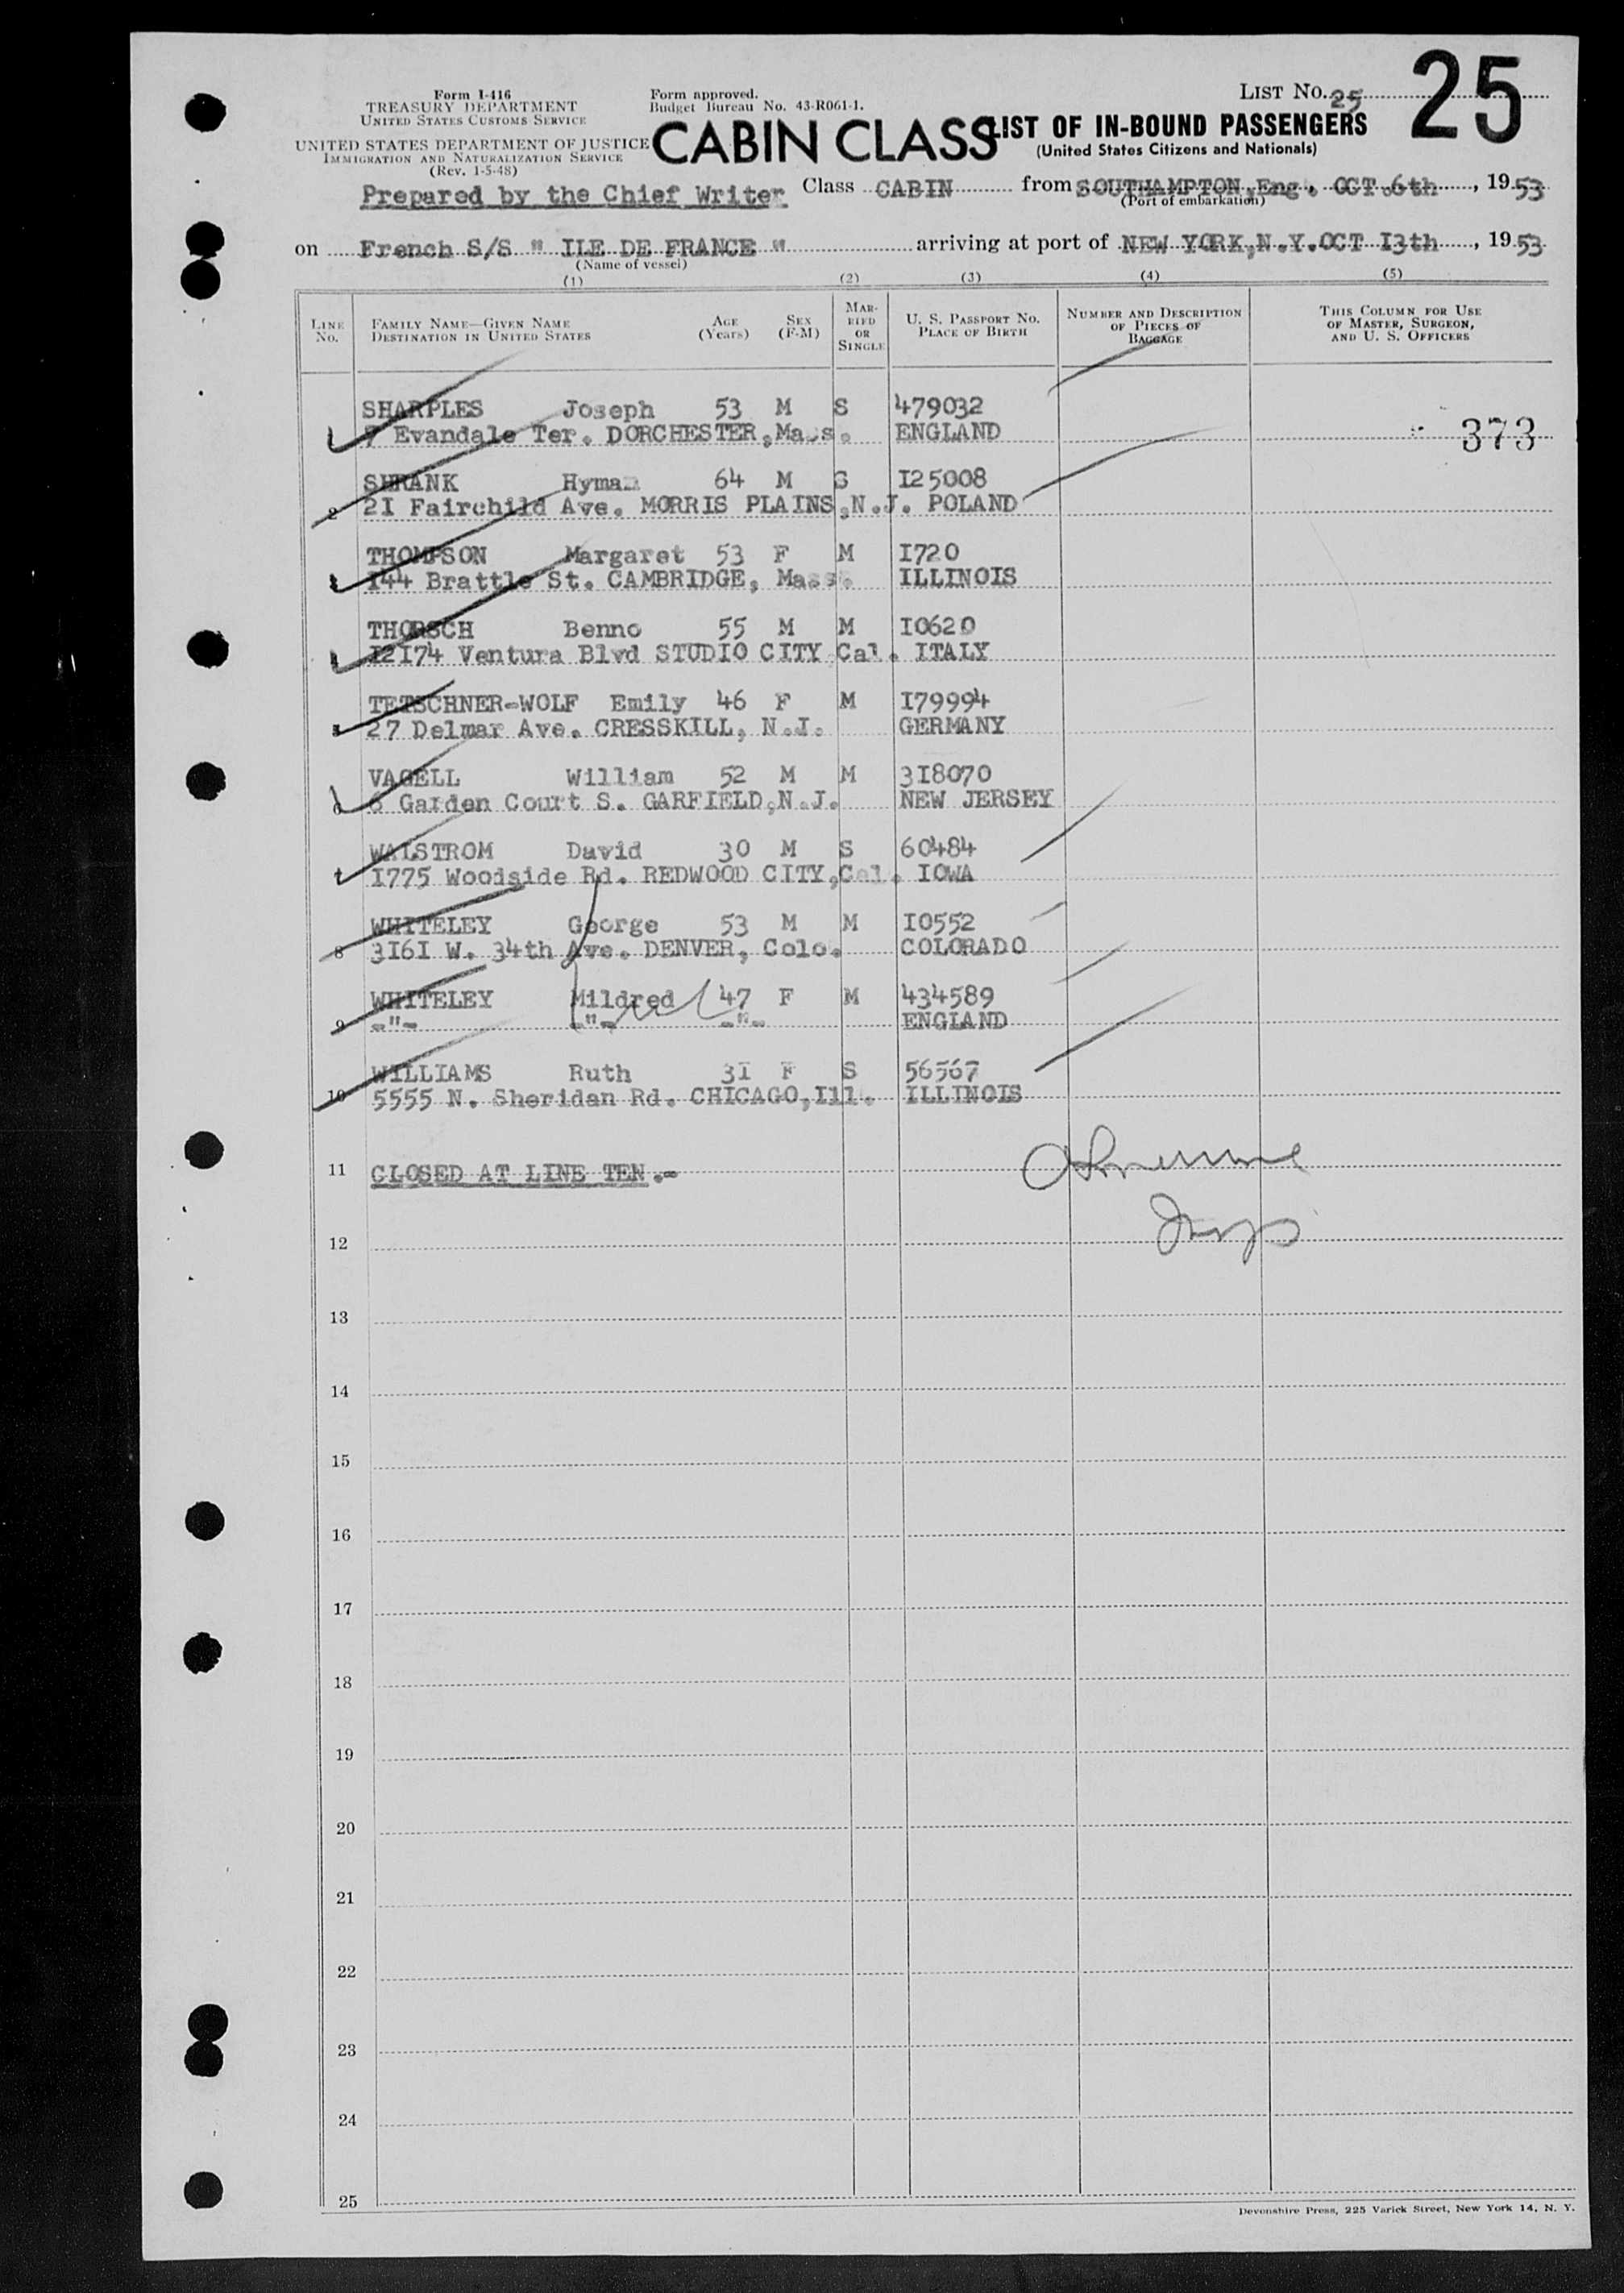 Form I-416
TREASURY DEPARTMENT
UNITED STATES CUSTOMS SERVICE
UNITED STATES DEPARTMENT OF JUSTICE
IMMIGRATION AND NATURALIZATION SERVICE
(Rev. 1-5-48)
Form approved.
Budget Bureau No. 43-R061-1.
LIST No. 25
25
CABIN CLASS LIST OF IN-BOUND PASSENGERS
(United States Citizens and Nationals)
Prepared by the Chief Writer Class CABIN from SOUTHAMPTON,Eng. OCT.6th, 1953
(Port of embarkation)
on French S/S " ILE DE FRANCE " arriving at port of NEW YORK,N.Y.OCT I3th, 1953
(Name of vessel)
(1) (2) (3) (4) (5)
LINE No. FAMILY NAME—GIVEN NAME DESTINATION IN UNITED STATES AGE (Years) SEX (F-M) MARRIED OR SINGLE U. S. PASSPORT NO. PLACE OF BIRTH NUMBER AND DESCRIPTION OF PIECES OF BAGGAGE THIS COLUMN FOR USE OF MASTER, SURGEON, AND U. S. OFFICERS
SHARPLES Joseph 53 M S 479032
7 Evandale Ter. DORCHESTER,Mass. ENGLAND 373
SHRANK Hyman 64 M S I25008
2 2I Fairchild Ave. MORRIS PLAINS,N.J. POLAND
THOMPSON Margaret 53 F M I720
I44 Brattle St. CAMBRIDGE, Mass. ILLINOIS
THORSCH Benno 55 M M I0620
I2I74 Ventura Blvd STUDIO CITY Cal. ITALY
TETSCHNER-WOLF Emily 46 F M I79994
27 Delmar Ave. CRESSKILL, N.J. GERMANY
VAGELL William 52 M M 3I8070
6 8 Garden Court S. GARFIELD,N.J. NEW JERSEY
WALSTROM David 30 M S 60484
7 I775 Woodside Rd. REDWOOD CITY,Cal. IOWA
WHITELEY George 53 M M I0552
8 3I6I W. 34th Ave. DENVER, Colo. COLORADO
WHITELEY Mildred 47 F M 434589
9 -"- -"- -"- ENGLAND
WILLIAMS Ruth 3I F S 56567
10 5555 N. Sheridan Rd. CHICAGO,Ill. ILLINOIS
11 CLOSED AT LINE TEN.-
12
13
14
15
16
17
18
19
20
21
22
23
24
25
Devonshire Press, 225 Varick Street, New York 14, N. Y.